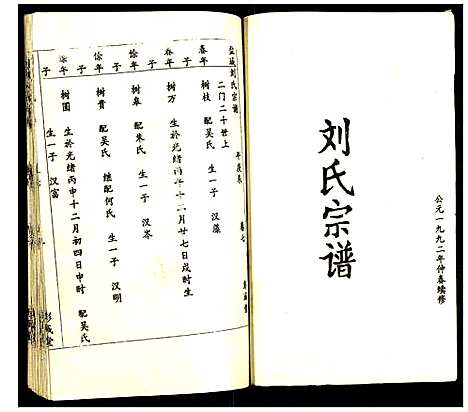 公元一九九二年仲春续修
刘氏宗谱
盐城刘氏宗谱 卷七 彭城堂
二门二十世上
春年 树枝 配吴氏 生一子 汉藻
子
春年 树万 生於光绪丙申十二月廿七日戌时生
子
馀年 树皋 配朱氏 生一子 汉岑
子
馀年 树贵 配吴氏 继配何氏 生一子 汉明
子
馀年 树圃 生於光绪丙申十二月初四日申时 配吴氏
子 生一子 汉富
彭城堂